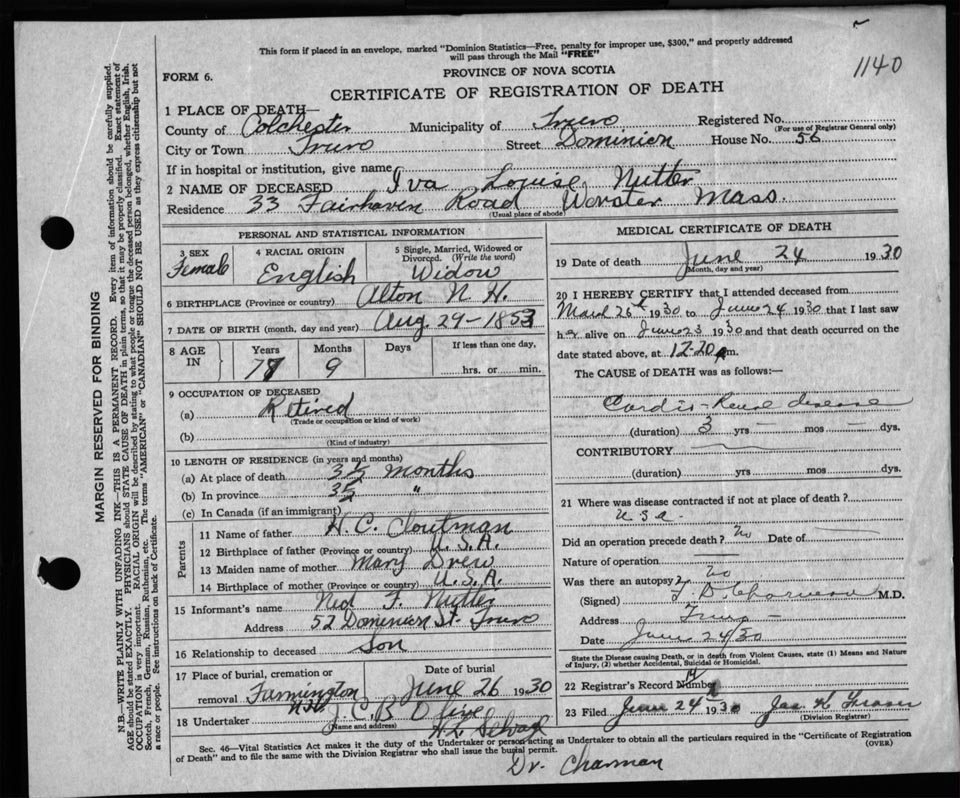 This form if placed in an envelope, marked "Dominion Statistics—Free, penalty for improper use, $300," and properly addressed
will pass through the Mail "FREE"
1140
FORM 6.
PROVINCE OF NOVA SCOTIA
CERTIFICATE OF REGISTRATION OF DEATH
1 PLACE OF DEATH—
County of Colchester Municipality of Truro Registered No.
(For use of Registrar General only)
City or Town Truro Street Dominion House No. 56
If in hospital or institution, give name
2 NAME OF DECEASED Iva Louise Nutter
Residence 33 Fairhaven Road Worster Mass.
(Usual place of abode)
PERSONAL AND STATISTICAL INFORMATION
3 SEX
Female
4 RACIAL ORIGIN
English
5 Single, Married, Widowed or
Divorced. (Write the word)
Widow
6 BIRTHPLACE (Province or country) Alton N. H.
7 DATE OF BIRTH (month, day and year) Aug. 29-1853
8 AGE
IN
Years
Months 9
Days
If less than one day,
hrs. or min.
9 OCCUPATION OF DECEASED
(a) Retired
(Trade or occupation or kind of work)
(b)
(Kind of industry)
10 LENGTH OF RESIDENCE (in years and months)
(a) At place of death 3½ months
(b) In province 3½ "
(c) In Canada (if an immigrant)
Parents
11 Name of father H. C. Cloutman
12 Birthplace of father (Province or country) U.S.A.
13 Maiden name of mother Mary Drew
14 Birthplace of mother (Province or country) U.S.A.
15 Informant's name Ned F. Nutter
Address 52 Dominion St. Truro
16 Relationship to deceased Son
17 Place of burial, cremation or
removal Farmington N.H.
Date of burial
June 26 1930
18 Undertaker J. C. B.
(Name and address)
MEDICAL CERTIFICATE OF DEATH
19 Date of death June 24 1930
(Month, day and year)
20 I HEREBY CERTIFY that I attended deceased from
March 26th 1930 to June 24 1930 that I last saw
her alive on June 23 1930 and that death occurred on
the date stated above, at 12-20 m.
The CAUSE OF DEATH was as follows:—
Cardio-Renal disease
(duration) 3 yrs — mos — dys.
CONTRIBUTORY
(duration) yrs mos dys.
21 Where was disease contracted if not at place of death?
U.S.A.
Did an operation precede death? No Date of
Nature of operation
Was there an autopsy? No
(Signed) Charman M.D.
Address Truro
Date June 24/30
State the Disease causing Death, or in death from Violent Causes, state (1) Means and Nature
of Injury, (2) whether Accidental, Suicidal or Homicidal.
22 Registrar's Record Number
23 Filed June 24 1930 Jas.
(Division Registrar)
Sec. 46—Vital Statistics Act makes it the duty of the Undertaker or person acting as Undertaker to obtain all the particulars required in the "Certificate of Registration
of Death" and to file the same with the Division Registrar who shall issue the burial permit. (OVER)
Dr. Charman
MARGIN RESERVED FOR BINDING
N.B.—WRITE PLAINLY WITH UNFADING INK—THIS IS A PERMANENT RECORD. Every item of information should be carefully supplied.
AGE should be stated EXACTLY. PHYSICIANS should STATE CAUSE OF DEATH in plain terms, so that it may be properly classified. Exact statement of
OCCUPATION is very important. RACIAL ORIGIN will be described by stating to what people or tongue the deceased person belonged, whether English, Irish,
Scotch, French, German, Russian, Ruthenian, etc. The terms "AMERICAN" or "CANADIAN" SHOULD NOT BE USED as they express citizenship but not
a race or people. See instructions on back of Certificate.